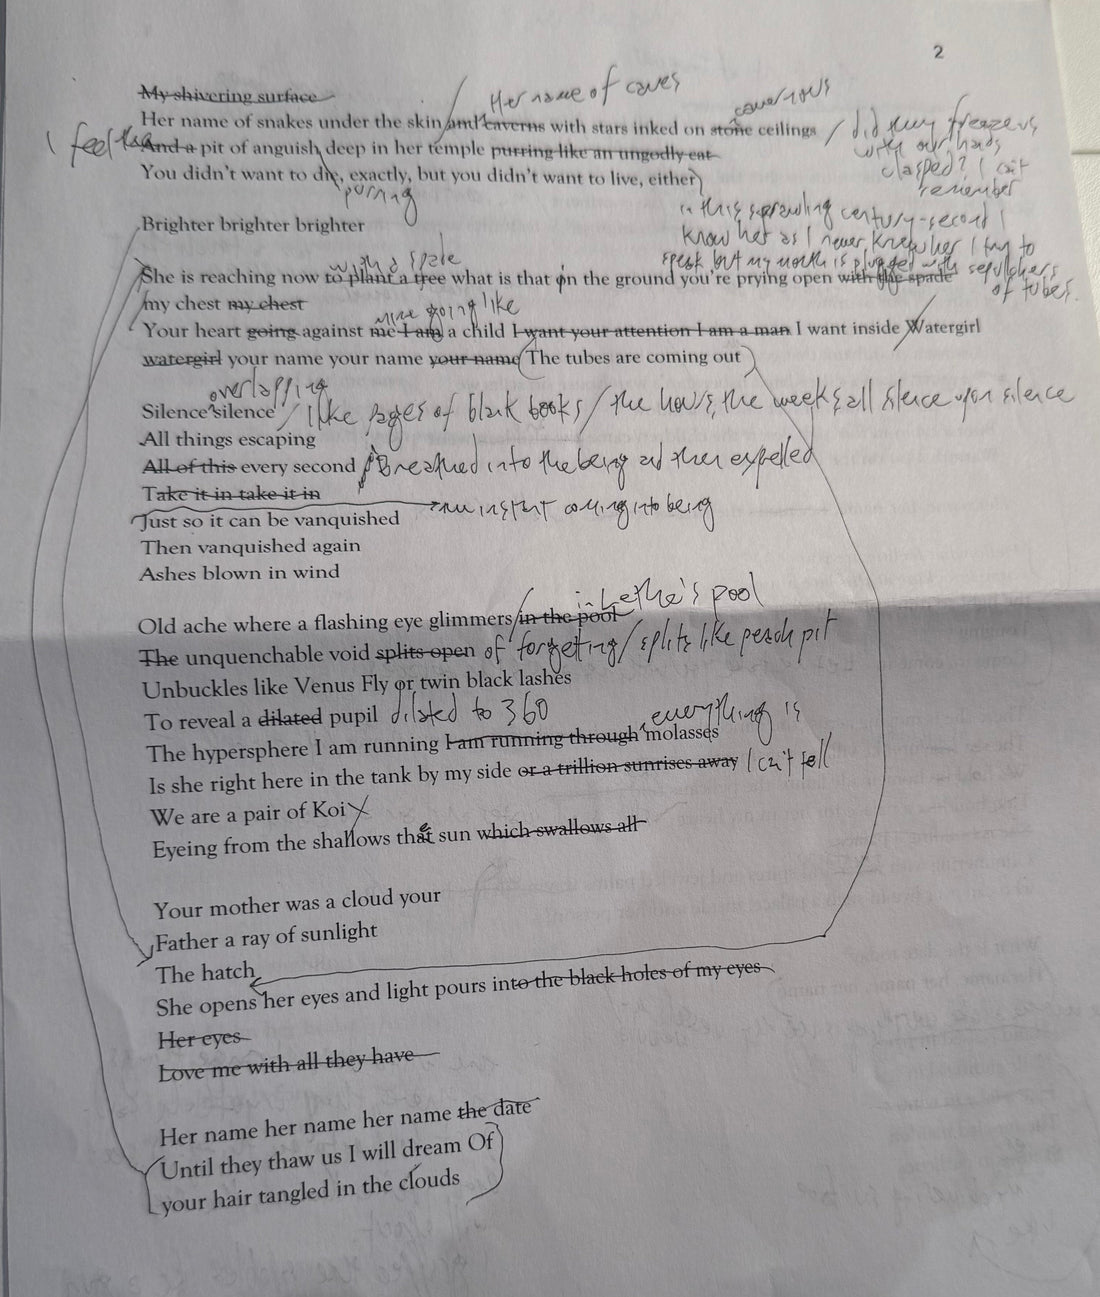 2
My shivering surface
Her name of caves
cavernous
Her name of snakes under the skin and caverns with stars inked on stone ceilings / did they freeze us
with our hands
clasped? I can't
remember
I feel the
And a pit of anguish deep in her temple purring like an ungodly cat
You didn't want to die, exactly, but you didn't want to live, either
purring
in this sprawling century-second I
know her as I never knew her I try to
speak but my mouth is plugged with sepulchers
of tubes.
Brighter brighter brighter
with a spade
She is reaching now to plant a tree what is that on the ground you're prying open with the spade
my chest my chest
mine going like
Your heart going against me I am a child I want your attention I am a man I want inside Watergirl
watergirl your name your name your name The tubes are coming out
overlapping
Silence silence / like pages of blank books / the hours, the weeks all silence upon silence
All things escaping
All of this every second Breathed into the being and then expelled
Take it in take it in
an instant coming into being
Just so it can be vanquished
Then vanquished again
Ashes blown in wind
in Lethe's pool
Old ache where a flashing eye glimmers / in the pool
The unquenchable void splits open of forgetting / splits like peach pit
Unbuckles like Venus Fly or twin black lashes
To reveal a dilated pupil dilated to 360
everything is
The hypersphere I am running I am running through molasses
Is she right here in the tank by my side or a trillion sunrises away I can't tell
We are a pair of Koi
Eyeing from the shallows the sun which swallows all
Your mother was a cloud your
Father a ray of sunlight
The hatch
She opens her eyes and light pours into the black holes of my eyes
Her eyes
Love me with all they have
Her name her name her name the date
Until they thaw us I will dream Of
your hair tangled in the clouds